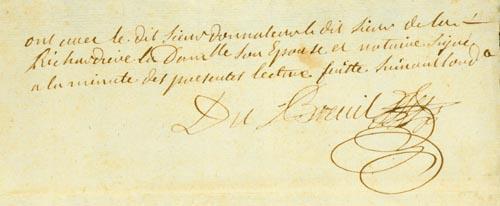 ont avec le dit sieur donnateur le dit sieur de la
Richardrie la Damlle son Epouse et notaire signé
a la minute des presentes lecture faitte suivant lord
Du Breuil